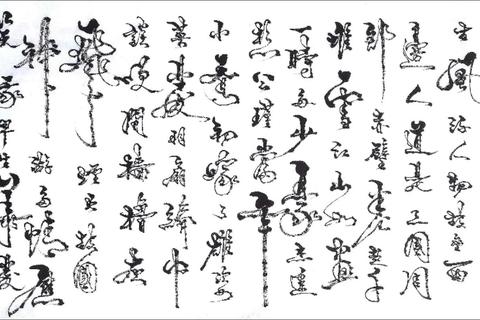 風流人物故壘西
邊人道是三國周
郎赤壁石起千
堆雪江山如畫
一時多少豪傑遙
想公瑾當年
小喬初嫁了雄姿
英發羽扇綸巾
談笑間檣櫓灰
飛煙滅故國
神遊多情應
笑我早生華髮